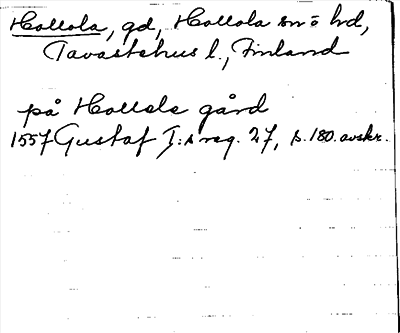 Hollola, gd, Hollola sn o hd,
Tavastehus l., Finland
på Hollola gård
1557 Gustaf I:s reg. 27, s. 180. avskr.